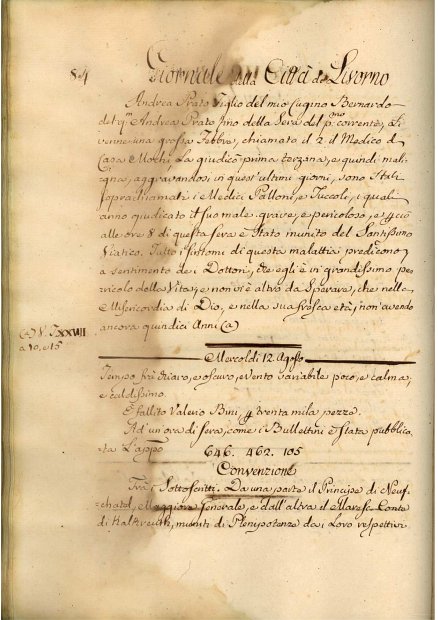 84 Giornale della Città di Livorno
Andrea Prato Figlio del mio Cugino Bernardo
del qm Andrea Prato fino della Sera del pmo corrente, li
venne una grossa Febbre, chiamato il 2 il Medico di
Casa Mochi, la giudicò prima terzana, e quindi mali-
gna, aggravandosi in quest'ultimi giorni, sono Stati
sopracchiamati i Medici Palloni, e Tuccoli, i quali
anno giudicato il suo male grave, e pericoloso, e p ciò
alle ore 8 di questa sera è Stato munito del Santissimo
Viatico. Tutti i sintomi di questa malattia predicono
a sentimento de i Dottori, che egli è in grandissimo pe-
ricolo della Vita, e non vi è altro da Sperare, che nella
Misericordia di Dio, e nella sua fresca età, non avendo
ancora quindici Anni (a)
(a) V. T. XXVIII
a 10, e 15
Mercoldì 12. Agosto
Tempo frà chiaro, e oscuro, e vento variabile poco, e calma,
e caldissimo.
È fallito Valerio Bini, p trenta mila pezze.
Ad un'ora di sera, come i Bullettini è Stata pubblica-
ta L'appo 646. 462. 105
Convenzione
Trà i Sottoscritti. Da una parte il Principe di Neuf-
chatel, Maggiore Generale, e dall'altra il Maresc. Conte
di Kalkreuth, muniti di Plenipotenze da i Loro respettivi